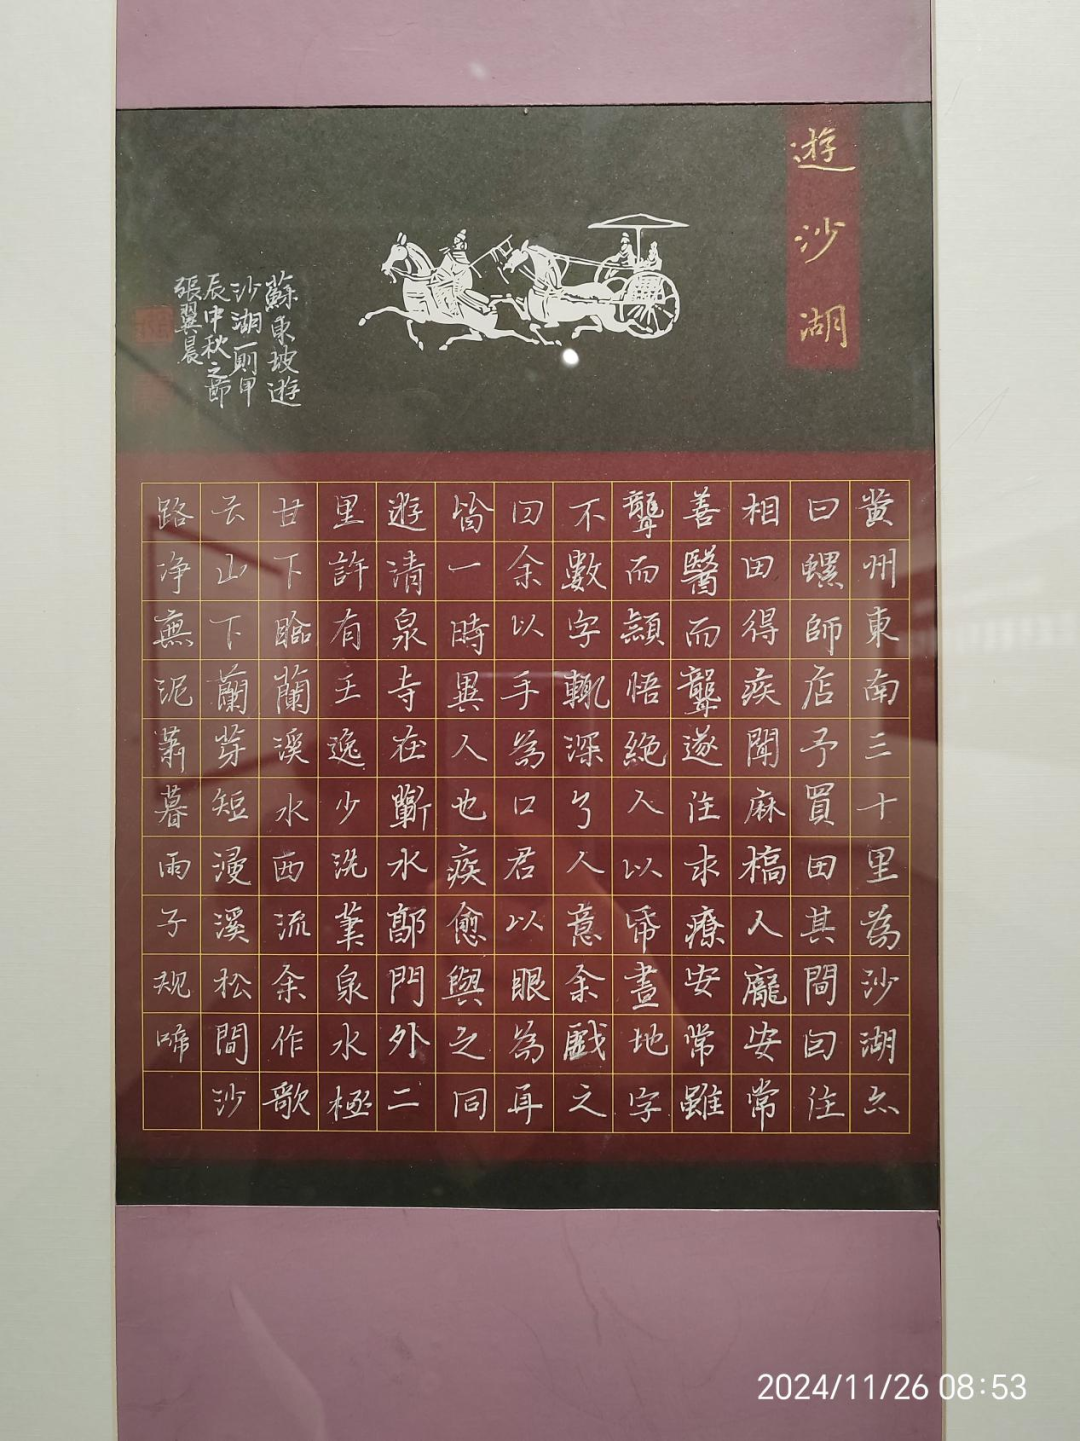 遊沙湖
蘇東坡遊
沙湖一則甲
辰中秋之節
張翼晨
黄州東南三十里為沙湖亦
曰螺師店予買田其間因往
相田得疾聞麻橋人龐安常
善醫而聾遂往求療安常雖
聾而穎悟絶人以帋畫地字
不數字輒深了人意余戲之
曰余以手為口君以眼為耳
皆一時異人也疾愈與之同
遊清泉寺在蘄水郭門外二
里許有王逸少洗筆泉水極
甘下臨蘭溪水西流余作歌
云山下蘭芽短浸溪松間沙
路净無泥蕭暮雨子規啼
2024/11/26 08:53